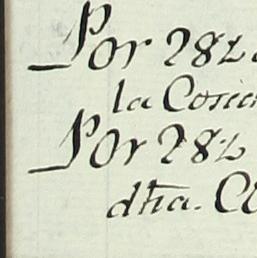 Por 282
la Cocin
Por 282
dha. C